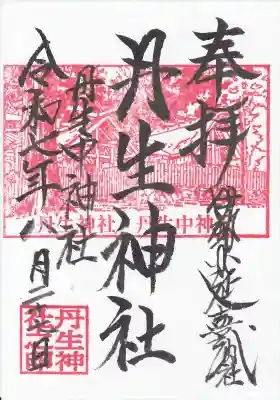 奉拝
丹生神社
丹生中神社
令和七年八月
丹生神社 丹生中神
丹生神